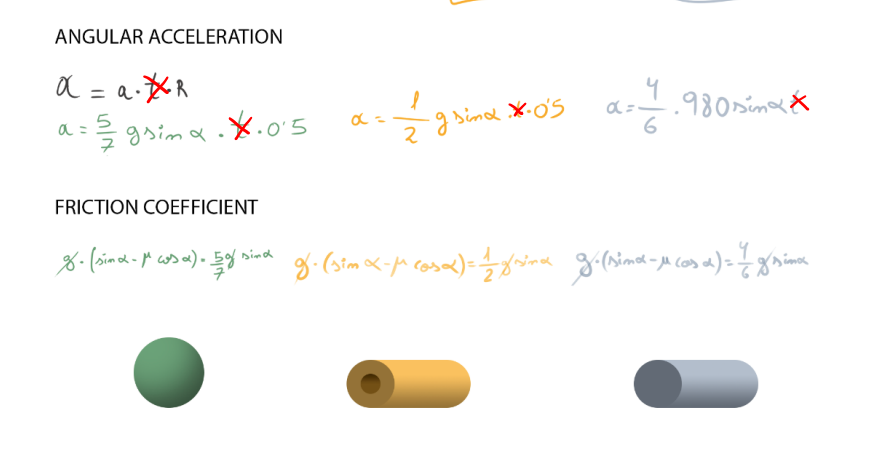 ANGULAR ACCELERATION
α = a · t · R
a = 5/7 g sin α · t · 0'5
α = 1/2 g sin α · t · 0'5
a = 4/6 · 980 sin α t
FRICTION COEFFICIENT
g · (sin α - μ cos α) = 5/7 g sin α
g · (sin α - μ cos α) = 1/2 g sin α
g · (sin α - μ cos α) = 4/6 g sin α